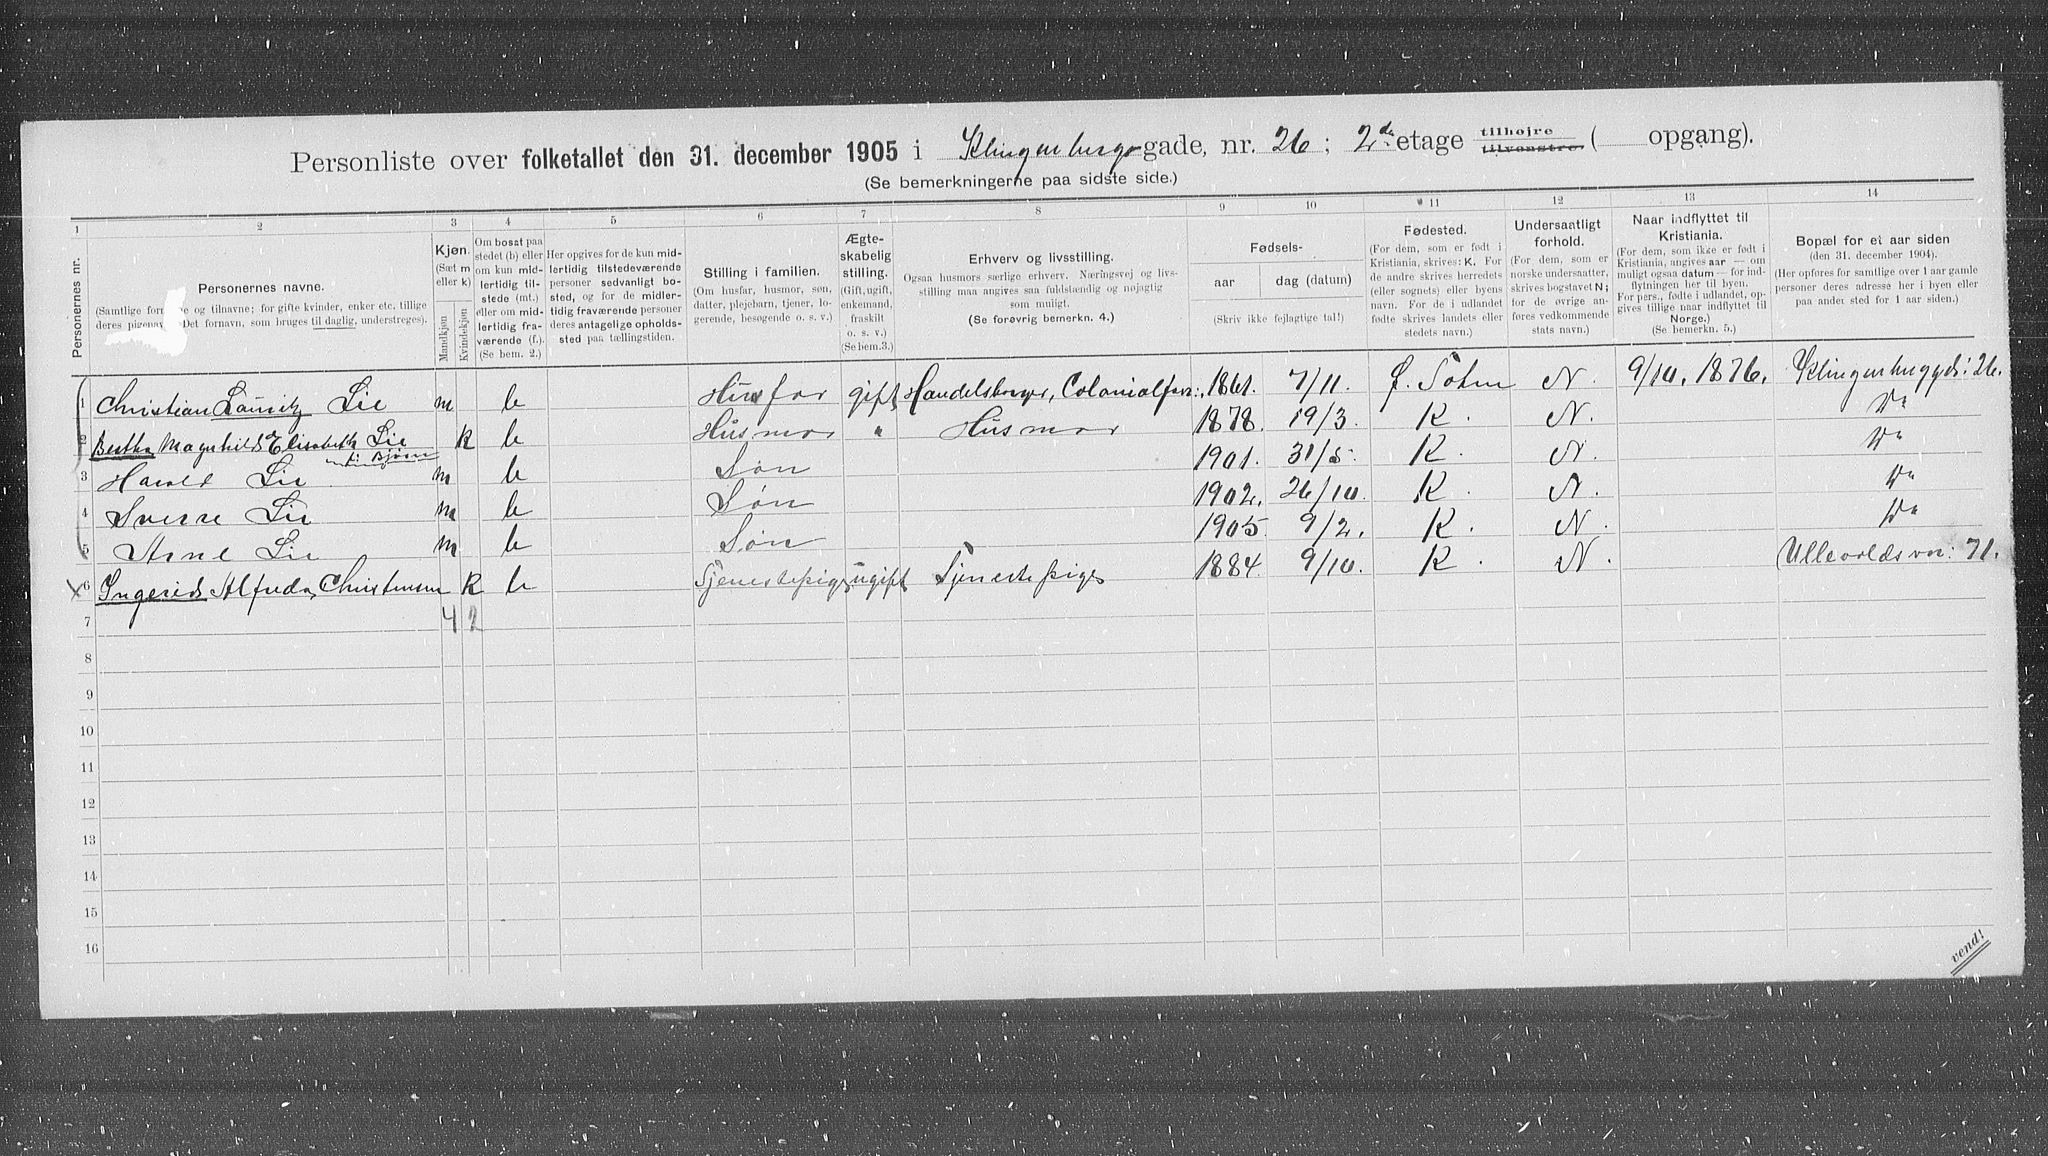 Personliste over folketallet den 31. december 1905 i Klingenbergsgade, nr. 26; 2de etage tilhøjre tilvenstre (      opgang).
(Se bemerkningerne paa sidste side.)
1 2 3 4 5 6 7 8 9 10 11 12 13 14
Personernes nr.
Personernes navne.
(Samtlige og tilnavne; for gifte kvinder, enker etc. tillige deres Det fornavn, som bruges til daglig, understreges).
Kjøn.
(Sæt m eller k)
Mandkjøn
Kvindekjøn
Om bosat paa stedet (b) eller om kun midlertidig tilstede (mt.) eller om midlertidig fraværende (f.). (Se bem. 2.)
Her opgives for de kun midlertidig tilstedeværende personer sedvanligt bosted, og for de midlertidig fraværende personer deres antagelige opholdssted paa tællingstiden.
Stilling i familien.
(Om husfar, husmor, søn, datter, plejebarn, tjener, logerende, besøgende o. s. v.)
Ægteskabelig stilling.
(Gift, ugift, enkemand, fraskilt o. s. v.)
(Se bem.3.)
Erhverv og livsstilling.
Ogsaa husmors særlige erhverv. Næringsvej og livsstilling maa angives saa fuldstændig og nøjagtig som muligt.
(Se forøvrig bemerkn. 4.)
Fødsels-
aar
dag (datum)
(Skriv ikke fejlagtige tal!)
Fødested.
(For dem, som er født i Kristiania, skrives: K. For de andre skrives herredets (eller sognets) eller byens navn. For de i udlandet fødte skrives landets eller stedets navn.)
Undersaatligt forhold.
(For dem, som er norske undersaatter, skrives bogstavet N; for de øvrige anføres vedkommende stats navn.)
Naar indflyttet til Kristiania.
(For dem, som ikke er født i Kristiania, angives aar — om muligt ogsaa datum — for indflytningen her til byen. For pers., fødte i udlandet, opgives tillige naar indflyttet til Norge.)
(Se bemerkn. 5.)
Bopæl for et aar siden
(den 31. december 1904).
(Her opføres for samtlige over 1 aar gamle personer deres adresse her i byen eller paa andet sted for 1 aar siden.)
1 Christian Lauritz Lie m b Husfar gift Handelsborger, 1861. 7/11. N. 9/10. 1876. 26.
2 Bertha Magnhild Elisabeth Lie K b Husmor " Husmor 1878. 19/3. K. N. Do
Bjørn
3 Harald Lie m b Søn 1901. 31/5. K. N. Do
4 Sverre Lie m b Søn 1902. 26/10. K. N. Do
5 Arne Lie m b Søn 1905. 9/2. K. N. Do
x 6 Ingerid Alfreda Christensen K b Tjenestepige ugift Tjenestepige 1884. 9/10. K. N. Ullevoldsvei: 71.
7 4 2
8
9
10
11
12
13
14
15
16
vend!